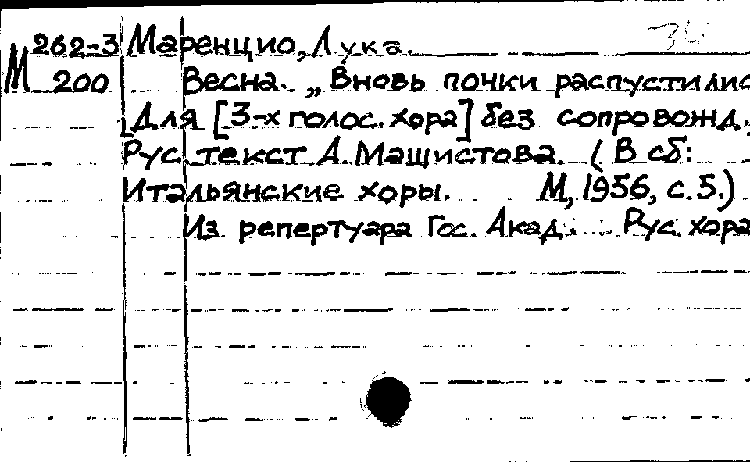 262-3 Маренцио, Лука.
М 200 Весна. „Вновь почки распустилис
Для [3-х голос. хора] без сопровожд.
Рус. текст А. Машистова. (В сб:
Итальянские хоры. М, 1956, с. 5.)
Из репертуара Гос. Акад. Рус. хора